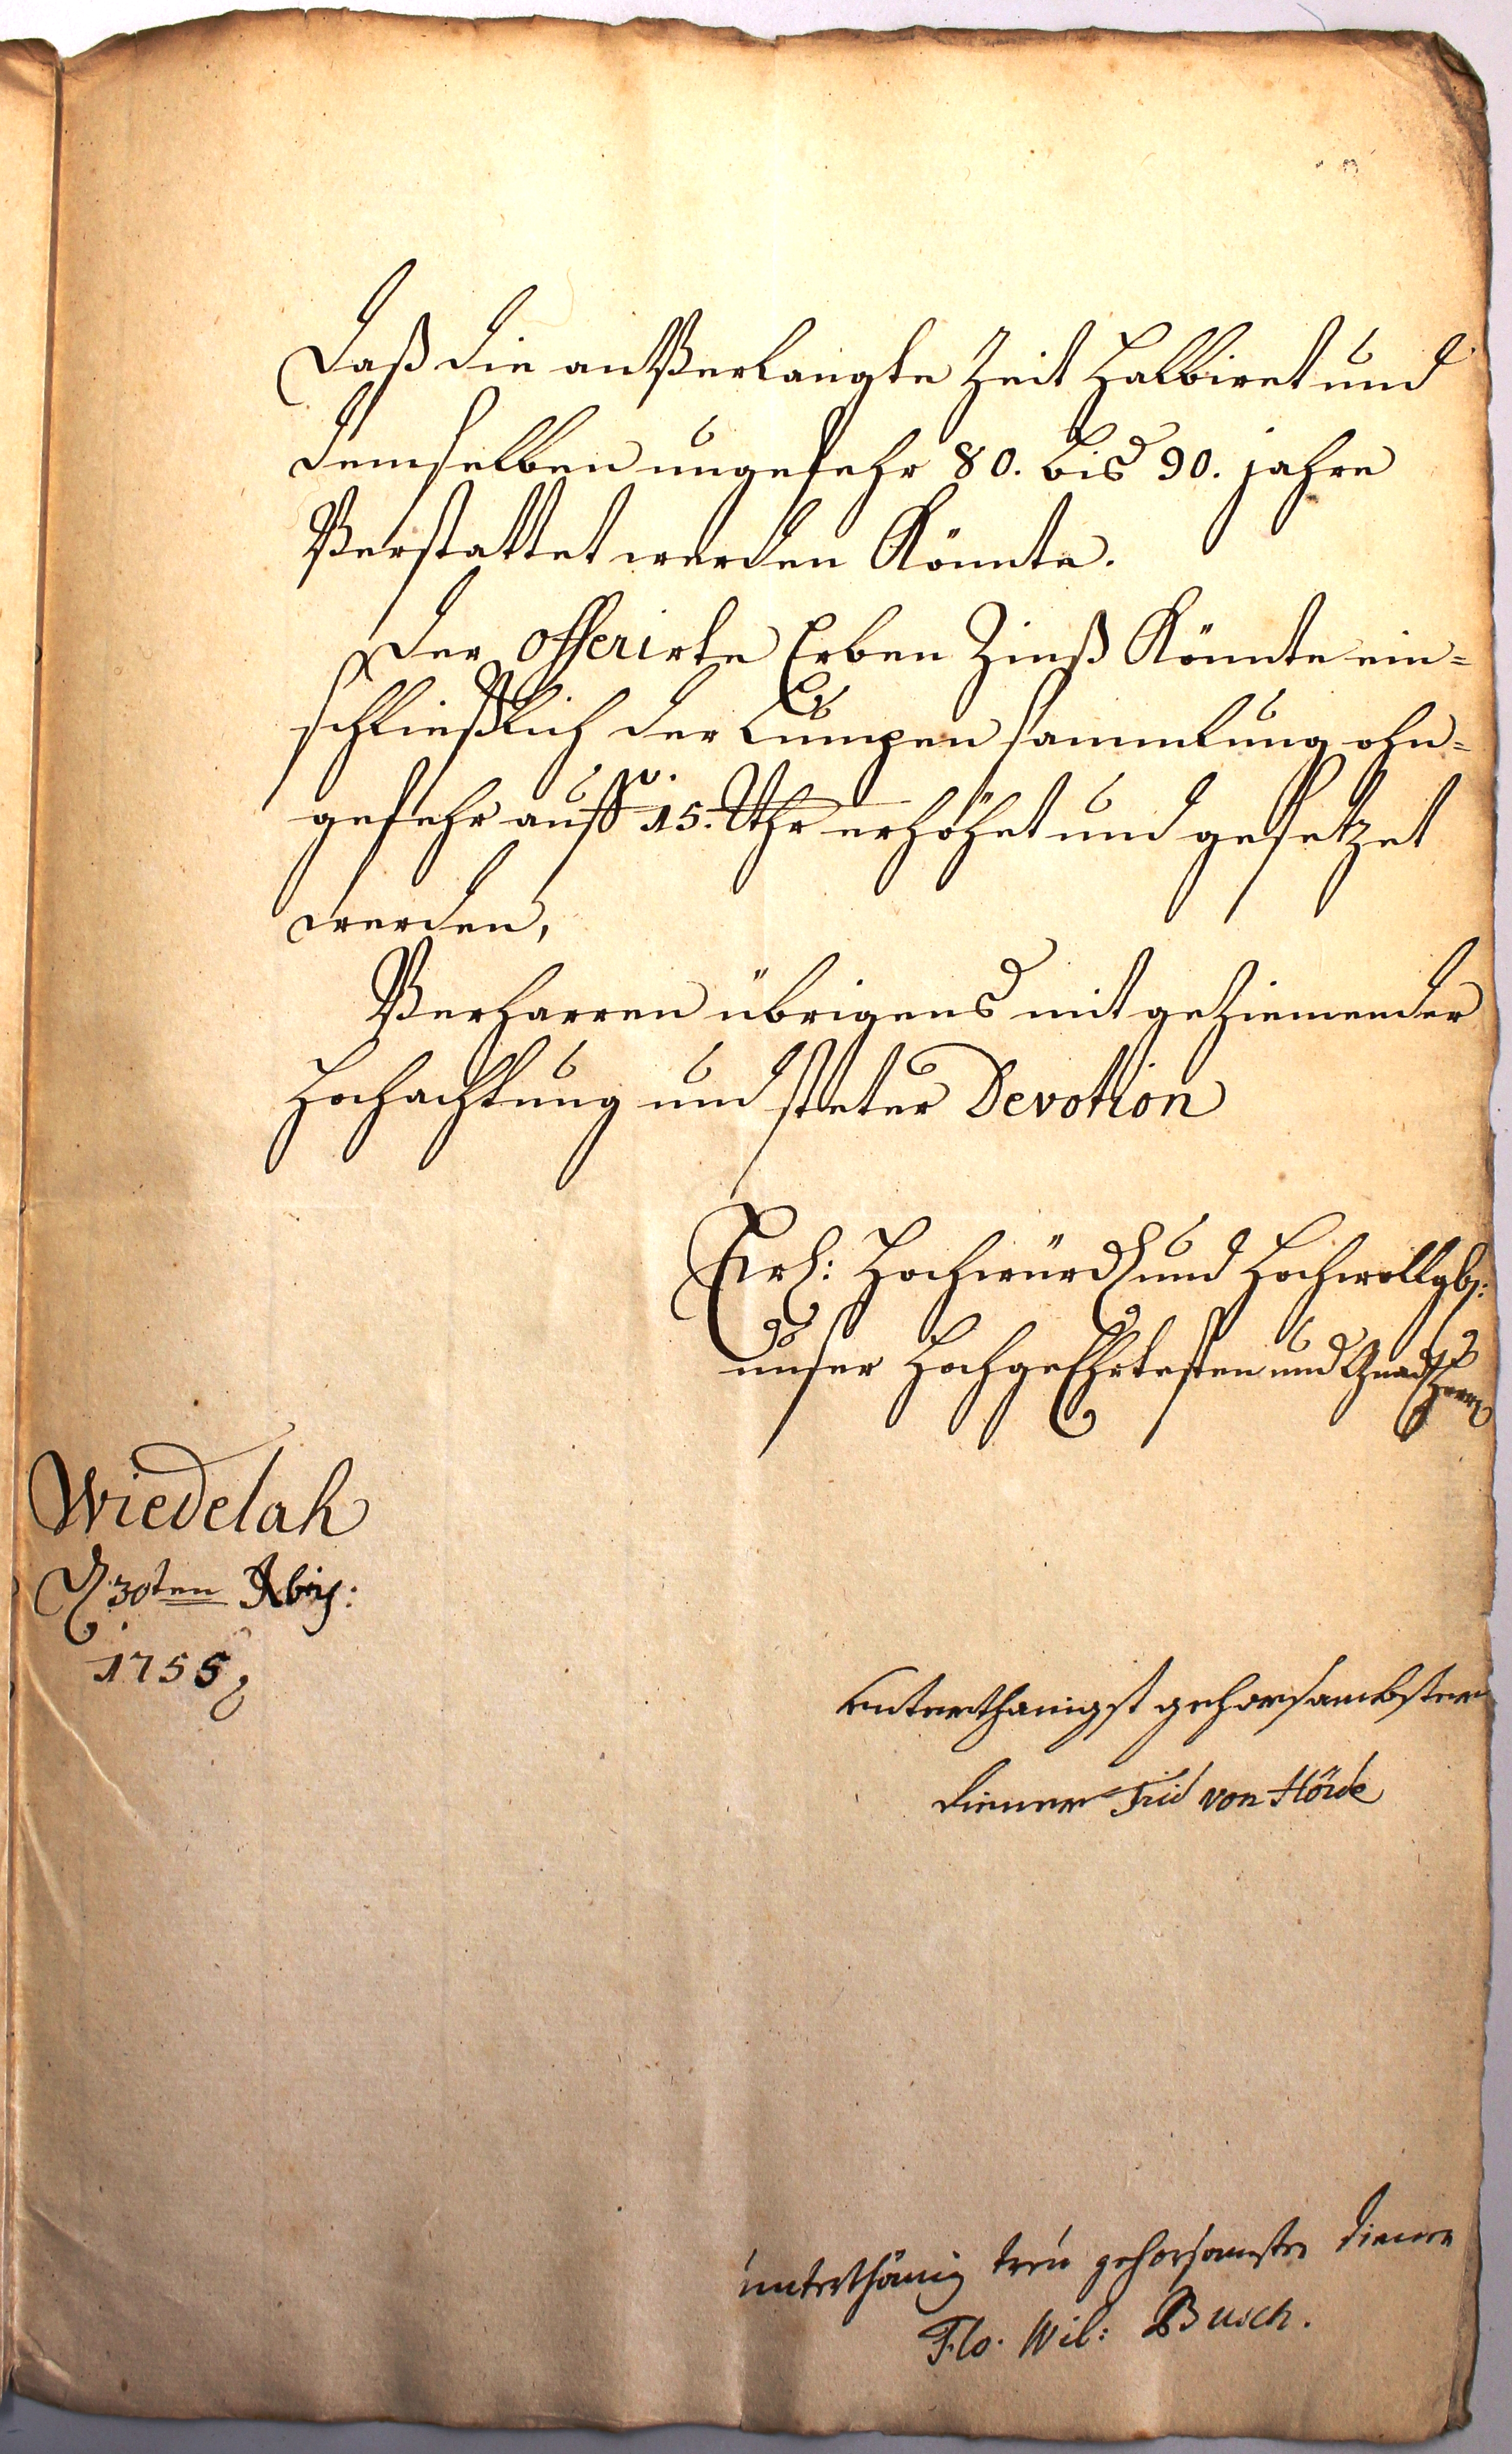 daß die anVerlangte Zeit Halbiret und
demselben ungefehr 80. bis 90. jahre
Verstattet werden Könnte.
Der offerirte Erben Zinß Könnte ein=
schließlich der Lumpen sammlung ohn=
gefehr auff 15. Thr erhöhet und gesetzet
werden,
Verharren übrigens mit geziemender
Hochachtung und steter Devotion
Hochwürd und Hochwollgb:
unser HochgeEhrtesten und Gnäd Herrn
Wiedelah
d 30ten Xbris:
1755
unterthanigst gehorsambster
diener Frid von Hörde
unterthänig treu gehorsamster diener
Flo. Wil: Busch.